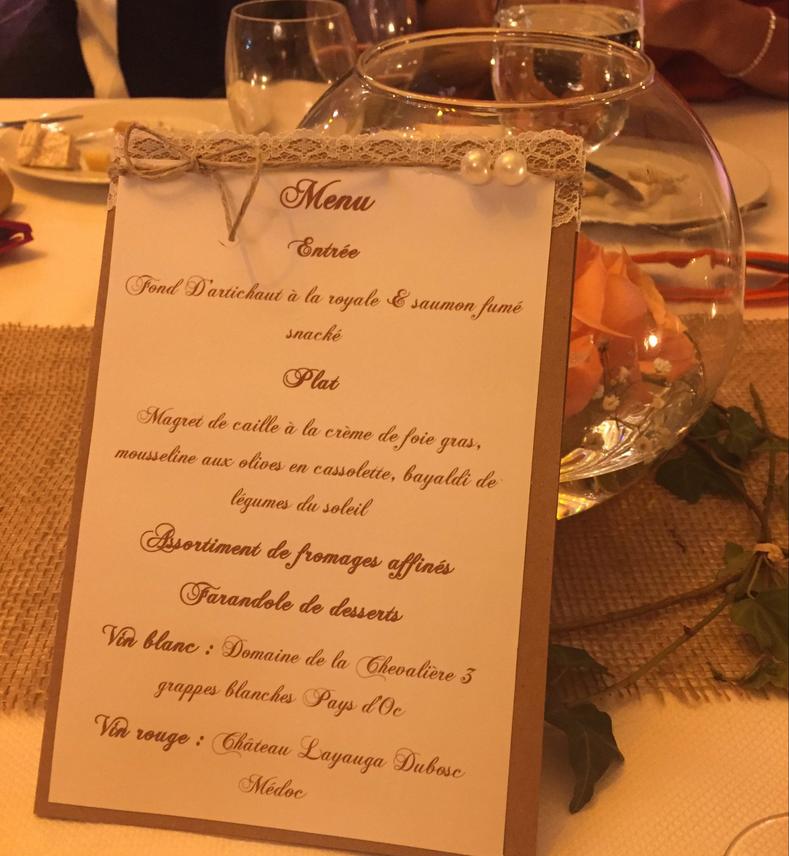 Menu
Entrée
Fond D'artichaut à la royale & saumon fumé
snacké
Plat
Magret de caille à la crème de foie gras,
mousseline aux olives en cassolette, bayaldi de
légumes du soleil
Assortiment de fromages affinés
Farandole de desserts
Vin blanc : Domaine de la Chevalière 3
grappes blanches Pays d'Oc
Vin rouge : Château Layauga Dubosc
Médoc